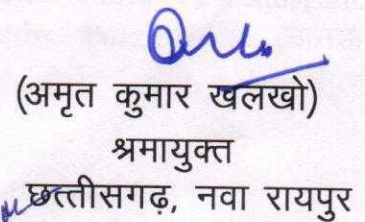 (अमृत कुमार खलखो)
श्रमायुक्त
छत्तीसगढ़, नवा रायपुर